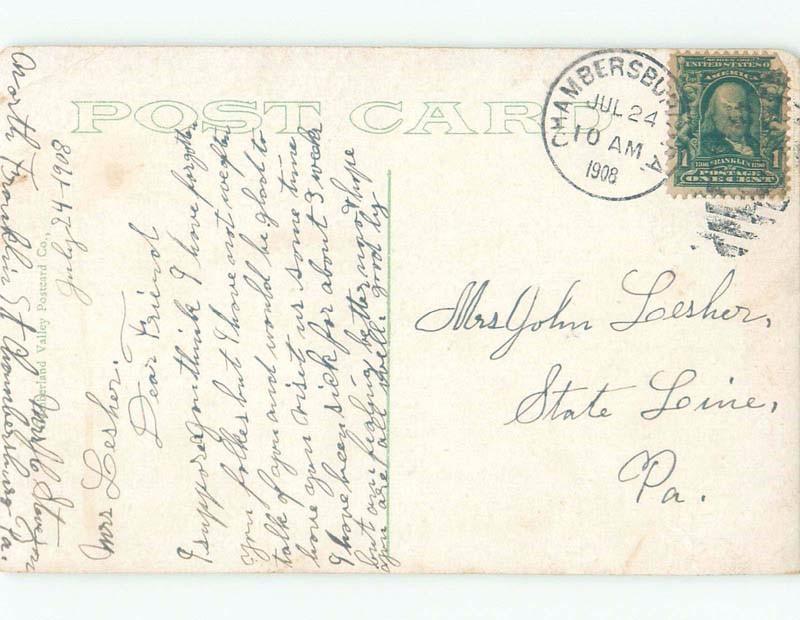 POST CARD
CHAMBERSBUR
JUL 24
10 AM
1908
SERIES 1902
UNITED STATES OF
AMERICA
1 FRANKLIN 1
POSTAGE
ONE CENT
Mrs John Lesher,
State Line,
Pa.
North Franklin St Chambersburg Pa.
Valley Postcard Co.,
July 24-1908
Mrs Lesher.
Dear Friend
I suppose you think I have forgotten
you folkes but I have not we often
talk of you and would be glad to
have you visit us some time
I have been sick for about 3 week
but am feeling better now & hope
you are all well. good by